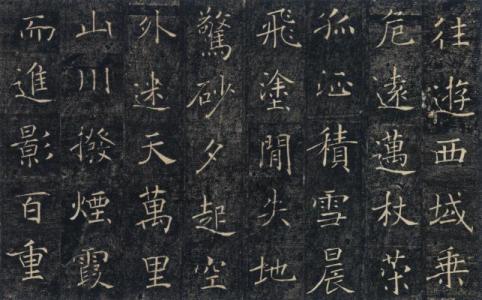 往遊西域乗
危遠邁杖䇿
孤征積雪晨
飛塗閒失地
驚砂夕起空
外迷天萬里
山川撥煙霞
而進影百重